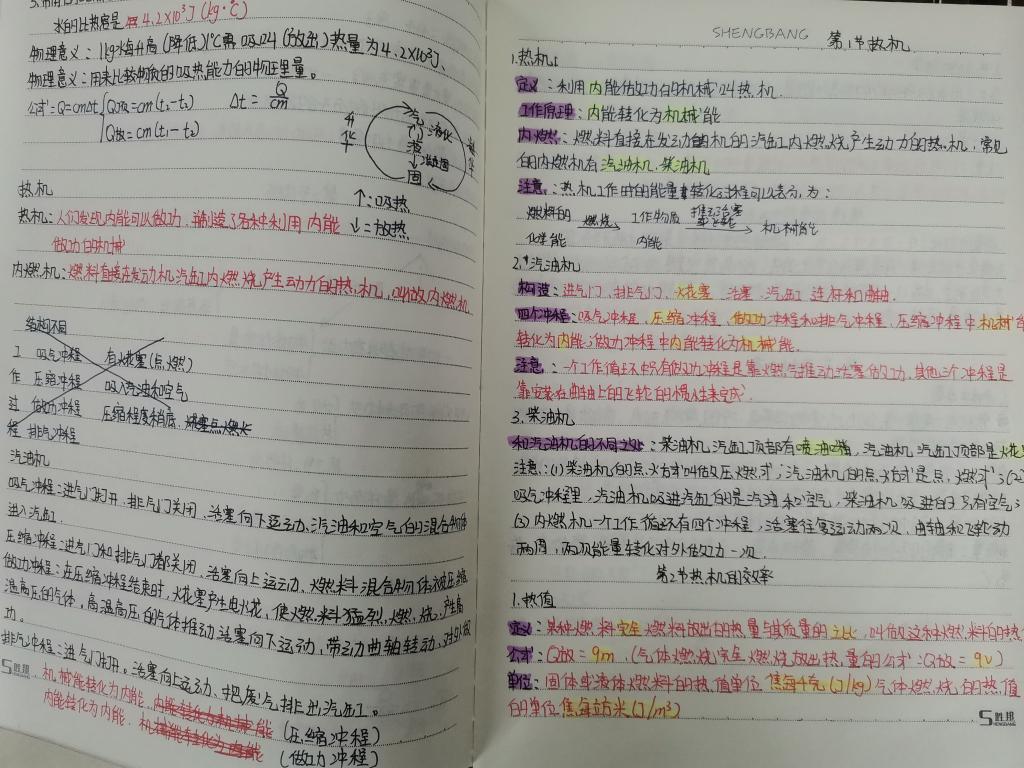 水的比热容是 4.2×10³J/(kg·℃)
物理意义：1kg水每升高(降低)1℃需吸收(放出)热量为4.2×10³J、
物理意义：用来比较物质的吸热能力的物理量。
公式：Q=cmΔt Q吸=cm(t₂-t₁) Δt=Q/cm
Q放=cm(t₁-t₂)
汽 液化
升华
液
凝固
固
↑：吸热
↓：放热
热机
热机：人们发现内能可以做功，制造了各种利用内能
做功的机械
内燃机：燃料直接在发动机汽缸内燃烧产生动力的热机，叫做内燃机
结构不同
工 吸气冲程 有火花塞(点燃)
作 压缩冲程 吸入汽油和空气
过 做功冲程 压缩程度稍底.
程 排气冲程
汽油机
吸气冲程：进气门打开，排气门关闭，活塞向下运动，汽油和空气的混合物体
进入汽缸.
压缩冲程：进气门和排气门都关闭，活塞向上运动，燃料混合物体被压缩
做功冲程：在压缩冲程结束时，火花塞产生电火花，使燃料猛烈燃烧，产生高
温高压的气体，高温高压的气体推动活塞向下运动，带动曲轴转动，对外做
功.
排气冲程：进气门打开。活塞向上运动、把废气排出汽缸。
机械能转化为内能. (压缩冲程)
内能转化为内能. (做功冲程)
胜邦
SHENGBANG 第1节热机
1.热机
定义：利用内能做功的机械叫热机.
工作原理：内能转化为机械能
内燃机：燃料直接在发动机的汽缸内燃烧产生动力的热机，常见
的内燃机有汽油机、柴油机
注意：热机工作时的能量转化过程可以表示为：
燃料的 燃烧→ 工作物质 推动活塞→ 机械能
化学能 内能
2.汽油机
构造：进气门、排气门、火花塞、活塞、汽缸、连杆和曲轴.
四个冲程：吸气冲程、压缩冲程、做功冲程和排气冲程，压缩冲程中机械能
转化为内能；做功冲程中内能转化为机械能.
注意：一个工作循环中只有做功冲程是靠燃气推动活塞做功，其他三个冲程是
靠安装在曲轴上的飞轮的惯性来完成.
3.柴油机
和汽油机的不同之处：柴油机汽缸顶部有喷油嘴，汽油机汽缸顶部是火花
注意：(1)柴油机的点火方式叫做压燃式；汽油机的点火方式是点燃式；(2)
吸气冲程里，汽油机吸进汽缸的是汽油和空气，柴油机吸进的只有空气；
(3)内燃机一个工作循环有四个冲程，活塞往复运动两次，曲轴和飞轮动
两周，两次能量转化对外做功一次.
第2节热机的效率
1.热值
定义：某种燃料完全燃烧放出的热量与其质量的之比，叫做这种燃料的热
公式：Q放=qm.(气体燃烧完全燃烧放出热量的公式：Q放=qv)
单位：固体或液体燃料的热值单位焦每千克(J/kg)气体燃烧的热值
的单位焦每立方米(J/m³)
胜邦
SHENGBANG